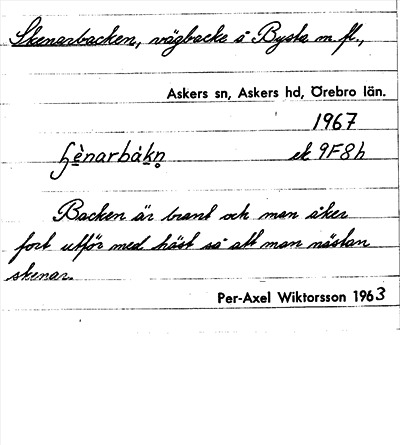 Skenarbacken, vägbacke i Bysta m. fl.,
Askers sn, Askers hd, Örebro län.
1967
ʃènarbákn̥ ek 9F8h
Backen är brant och man åker
fort utför med häst så att man nästan
skenar.
Per-Axel Wiktorsson 1963